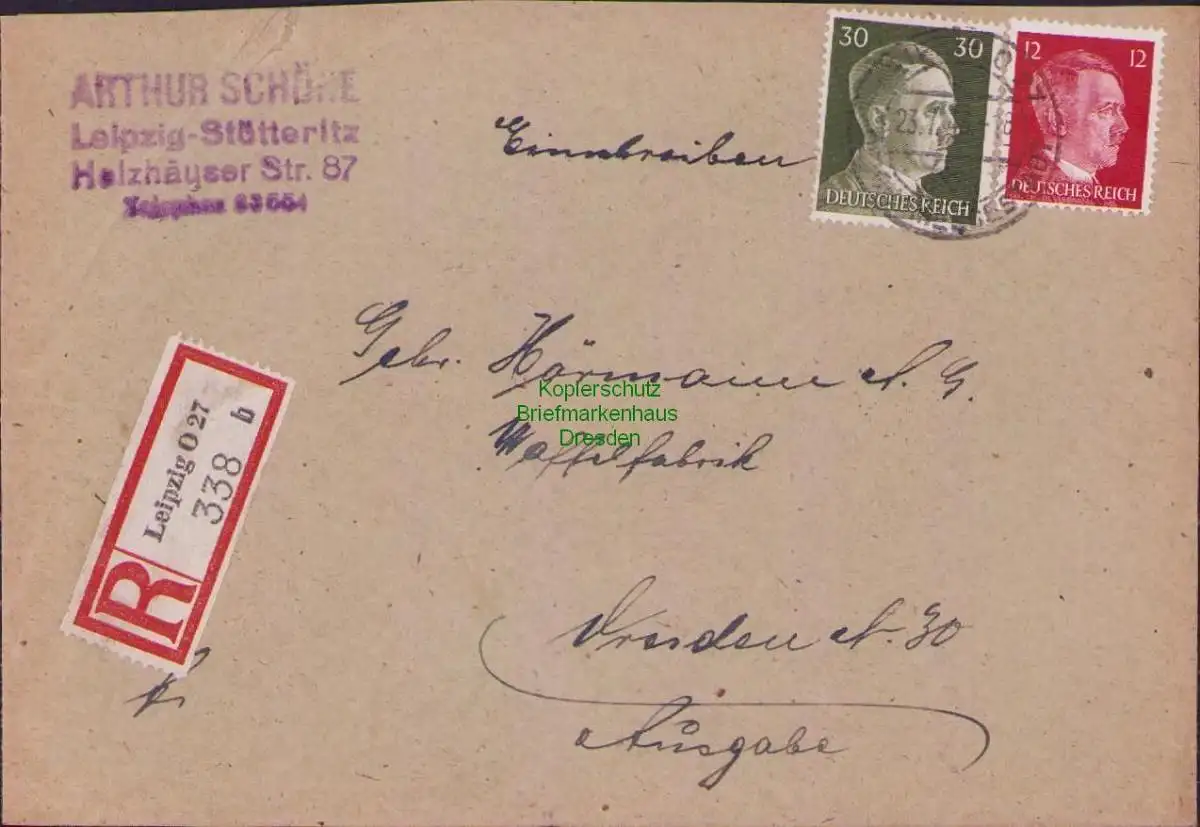 ARTHUR SCHÖNE
Leipzig-Stötteritz
Holzhäuser Str. 87
Telephon 63554
Einschreiben
30 30
DEUTSCHES REICH
12 12
DEUTSCHES REICH
23.7.
Gebr. Hörmann A. G.
Waffelfabrik
Kopierschutz
Briefmarkenhaus
Dresden
R
Leipzig O 27
338 b
Dresden A. 30
Ausgabe